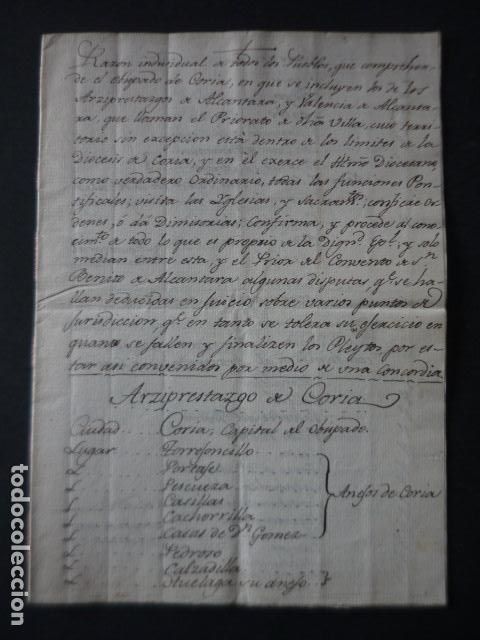 Razon individual de todos los Pueblos, que comprehen-
de el Obispado de Coria, en que se incluyen los de los
Arziprestazgos de Alcantara, y Valencia de Alcanta-
ra, que llaman el Priorato de dha Villa, cuio terri-
torio sin excepcion està dentro de los limites de la
Diocesis de Coria, y en el exerce el Illmo Diocesano,
como verdadero Ordinario, todas las funciones Pon-
tificales; visita las Yglesias, y Sacramtos, confiere Or-
denes, ò dà Dimisorias; Confirma, y procede al cono-
cimto de todo lo que es proprio de la Dignd. Epl., y solo
median entre esta, y el Prior del Convento de Sn
Benito de Alcantara algunas disputas, qe. se ha-
llan deducidas en Juicio sobre varios puntos de
Jurisdiccion, qe. en tanto se tolera su exercicio en
quanto se fallen y finalizen los Pleytos por es-
tar asi convenidos por medio de una Concordia.
Arziprestazgo de Coria
Ciudad Coria, Capital del Obispado.
Lugar Torrejoncillo
L Portaje
L Pescueza
L Casillas
L Cachorrilla
L Casas de Dn Gomez
Anejos de Coria
L Pedroso
L Calzadilla
L Huelaga su anejo
todocoleccion